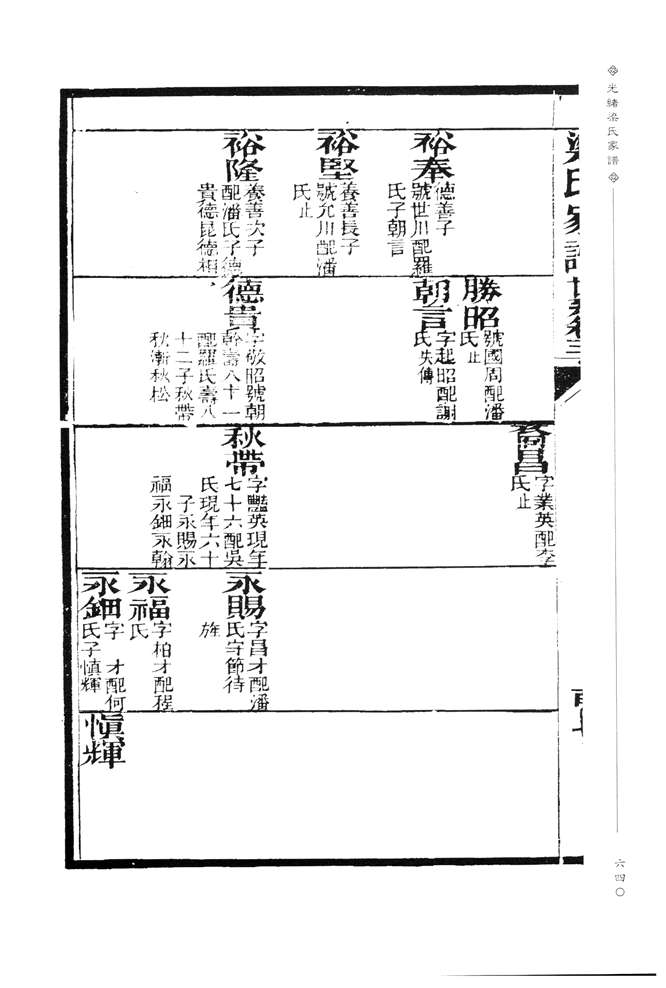 光緒梁氏家譜
六四〇
梁氏家譜世系卷三
裕奉
德善子
號世川配羅
氏子朝言
裕堅
養善長子
號允川配潘
氏止
裕隆
養善次子
配潘氏子德
貴德昆德相
勝昭
號國周配潘
氏止
朝言
字起昭配謝
氏失傳
德貴
字敬昭號朝
幹壽八十一
配羅氏壽八
十二子秋帶
秋漸秋松
喬昌
字業英配李
氏止
秋帶
字豔英現年
七十六配吳
氏現年六十
子永賜永
福永鈿永翰
永賜
字昌才配潘
氏守節待
旌
永福
字柏才配程
氏
永鈿
字 才配何
氏子慎輝
慎輝